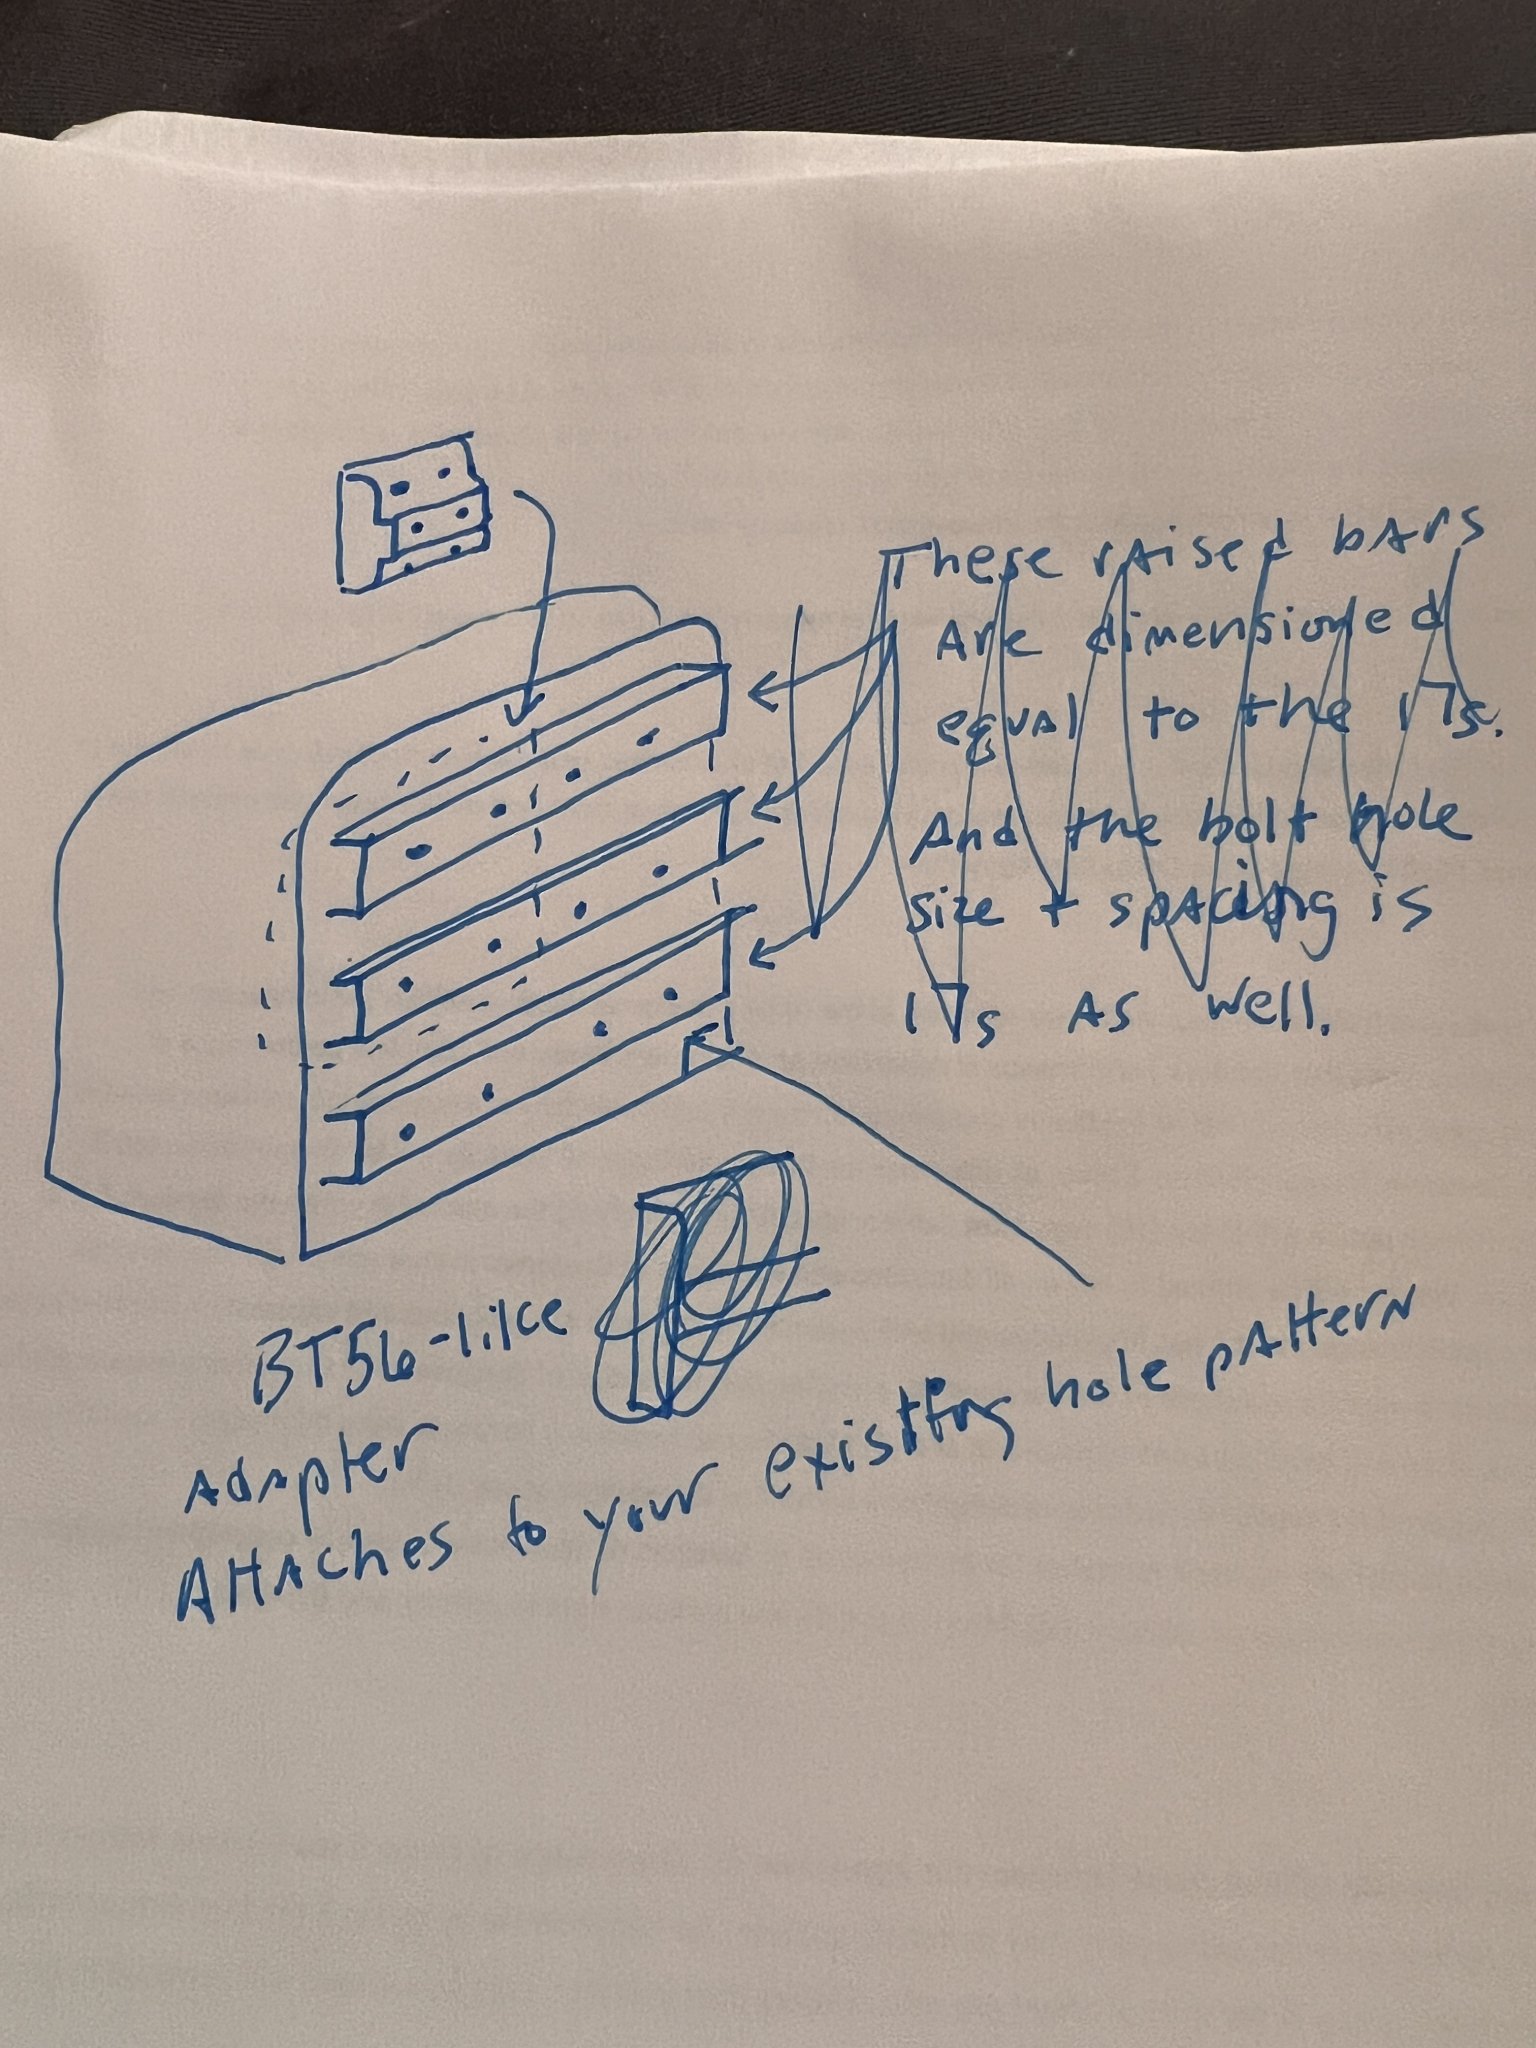 These raised bars
Are dimensioned
equal to the 17s.
And the bolt hole
size + spacing is
17s as well.
BT56-like
Adapter
Attaches to your existing hole pattern